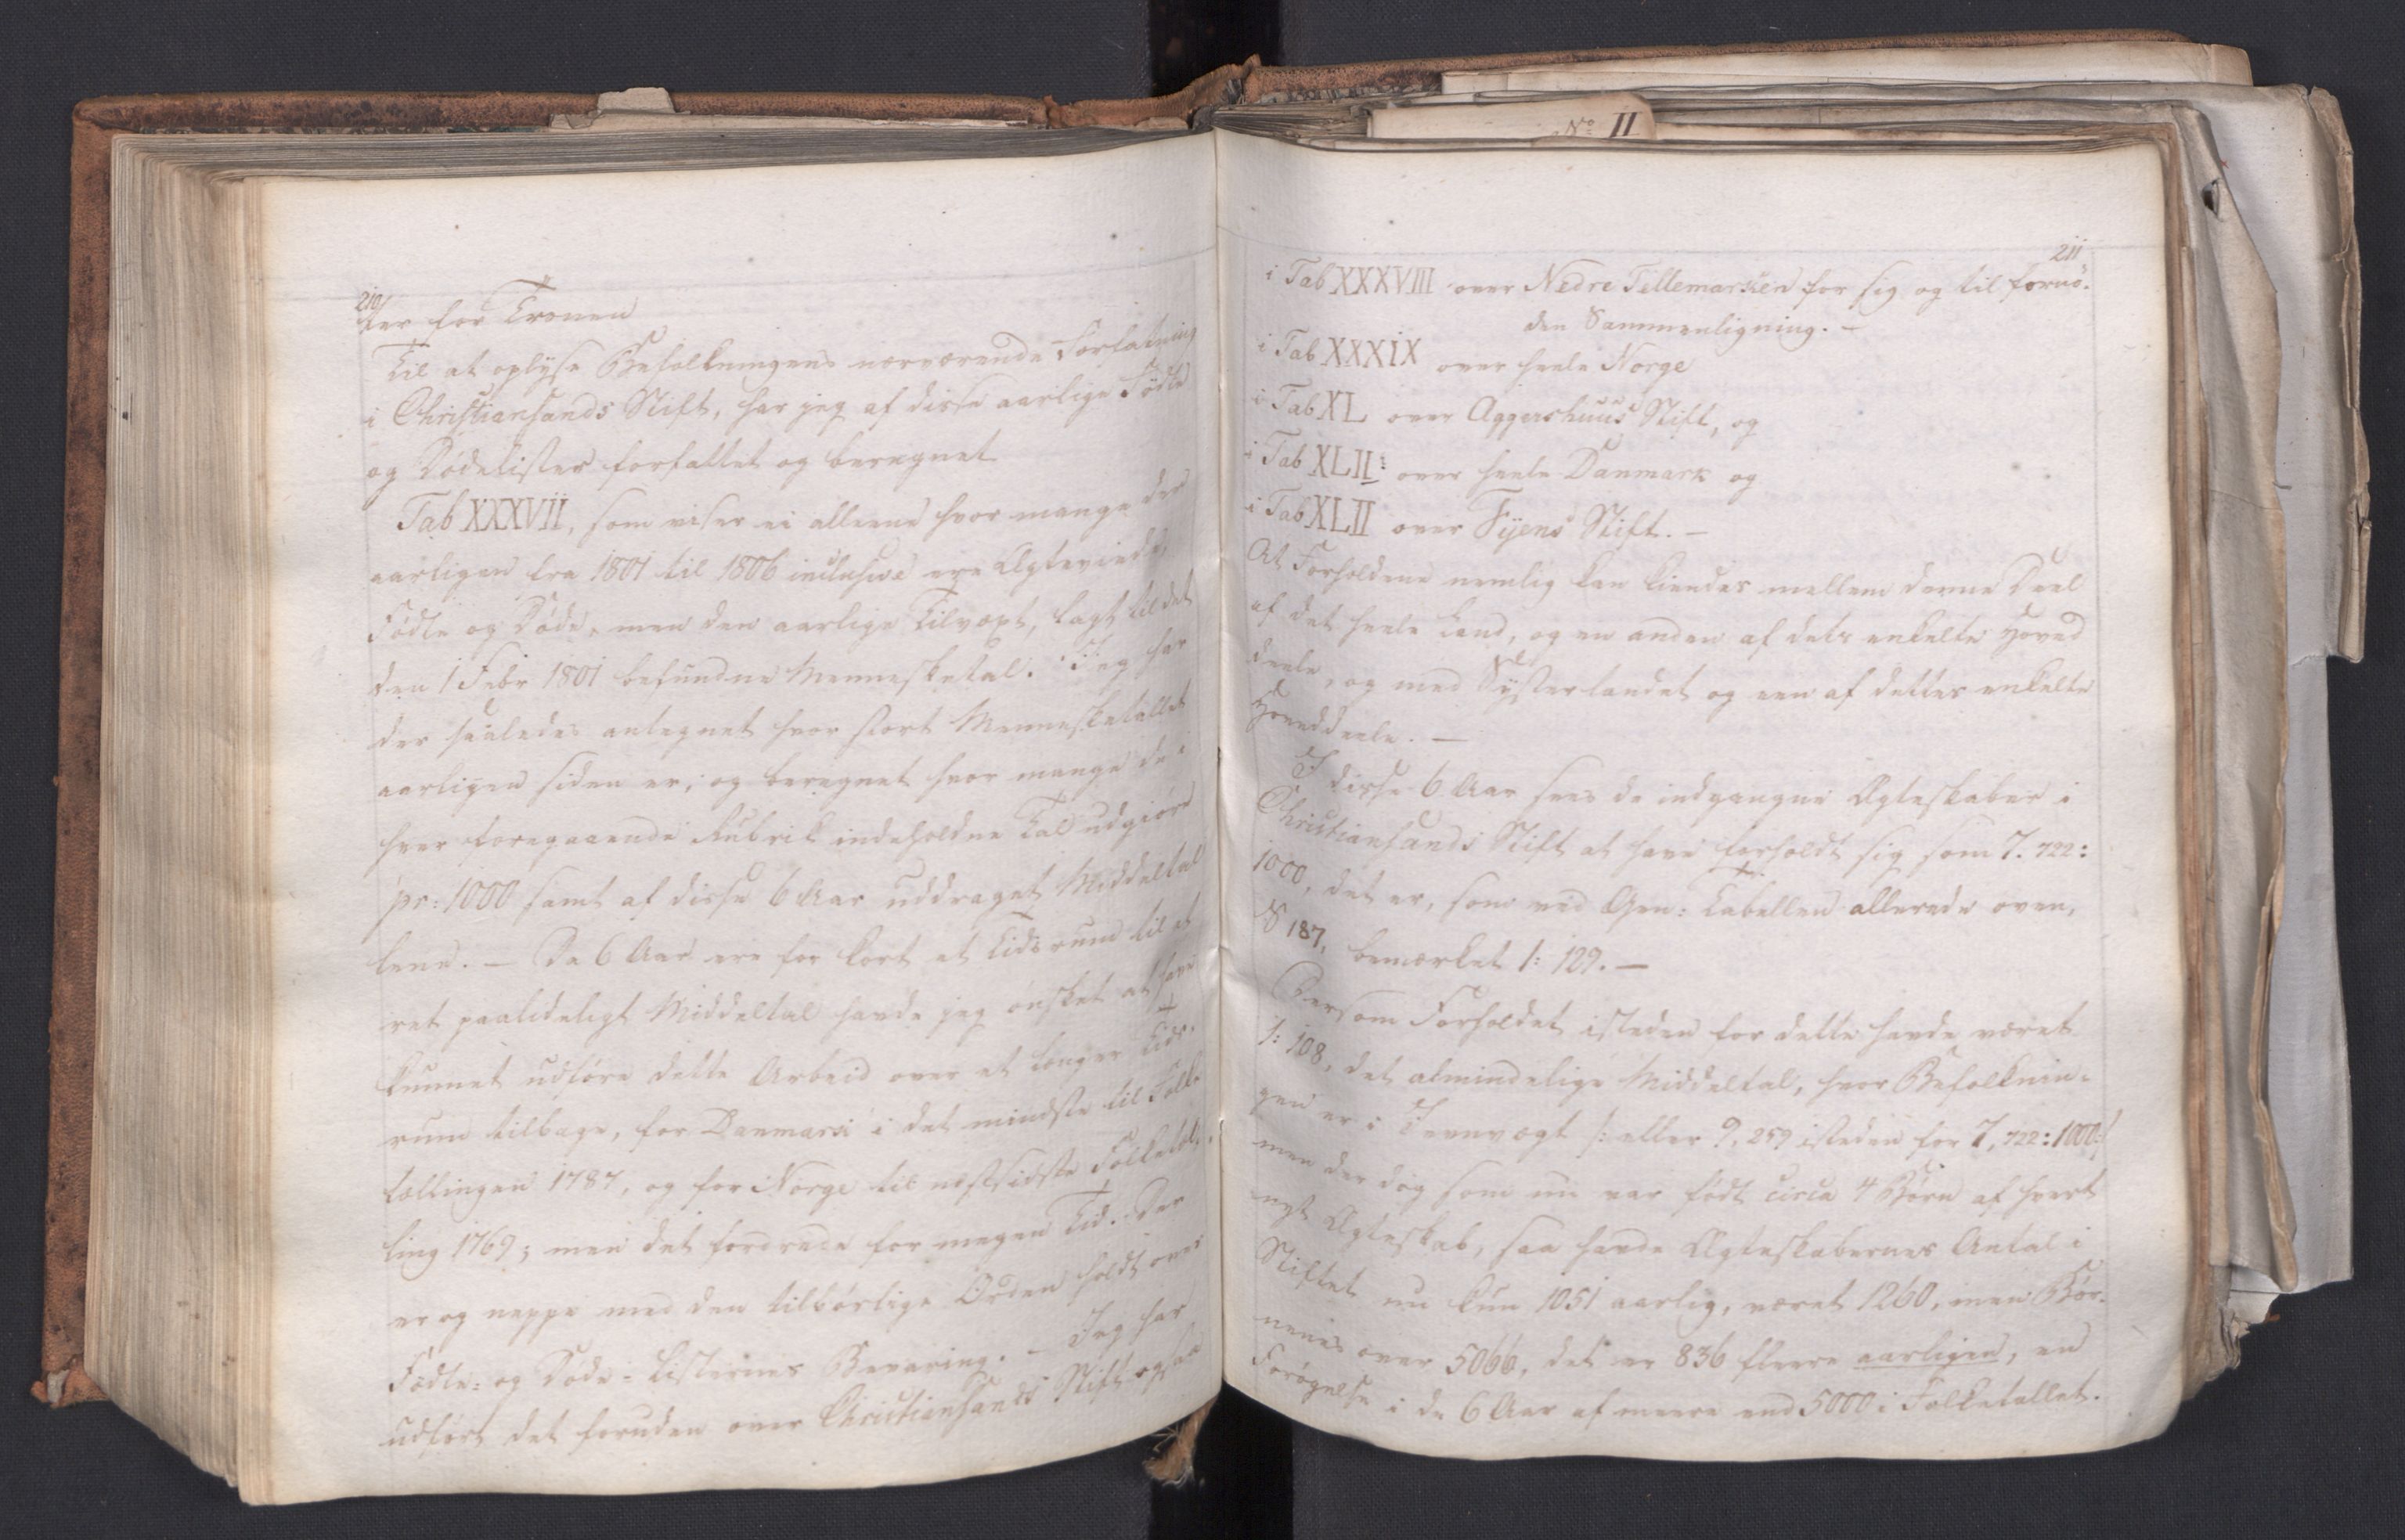 No II
210
ter for Tronen
Til at oplyse Befolkningens nærværende Forfatning
i Christiansands Stift, har jeg af disse aarlige Födte
og Dödelister forfattet og beregnet
Tab XXXVII, som viser ei alleene hvor mange der
aarligen fra 1801 til 1806 inclusive ere Ægteviede,
Födte og Döde, men den aarlige Tilvæxt, lagt til det
den 1 Febr 1801 befundne Mennesketal. Jeg har
der saaledes antegnet hvor stort Mennesketallet
aarligen siden er, og beregnet hvor mange de i
hver foregaaende Rubrik indeholdne Tal udgiöre
pr: 1000 samt af disse 6 Aar uddraget Middeltal
lene. – Da 6 Aar ere for kort et Tidsrum til et
ret paalideligt Middeltal havde jeg önsket at have
kunnet udföre dette Arbeid over et længer Tids-
rum tilbage, for Danmark i det mindste til Folke
tællingen 1787, og for Norge til næstsidste Folketæl-
ling 1769; men det fordrede for megen Tid. Der
er og neppe med den tilbörlige Orden holdt over
Födte- og Döde-Listernes Bevaring. – Jeg har
udfört det foruden over Christiansands Stift ogsaa
211
i Tab XXXVIII over Nedre Tellemarken for sig og til fornö-
den Sammenligning. –
i Tab XXXIX over heele Norge
i Tab XL over Aggershuus Stift, og
i Tab XLII: over heele Danmark og
i Tab XLII over Fyens Stift. –
At Forholdene nemlig kan kiendes mellem denne Deel
af det heele Land, og en anden af dets enkelte Hoved
deele, og med Systerlandet og een af dettes enkelte
Hoveddeele. –
I disse 6 Aar sees de indgangne Ægteskaber i
Christiansands Stift at have forholdt sig som 7.722:
1000, det er, som ved Gen: Tabellen allerede oven,
S 187, bemærket 1: 129. –
Dersom Forholdet isteden for dette havde været
1: 108, det almindelige Middeltal, hvor Befolknin-
gen er i Jevnvægt /: eller 9,259 isteden for 7,722:1000:/
men der dog som nu var födt circa 4 Börn af hvert
nyt Ægteskab, saa havde Ægteskabernes Antal i
Stiftet nu kun 1051 aarlig, været 1260, men Bör-
nenes over 5066, det er 836 fleere aarligen, en
Forögelse i de 6 Aar af meere end 5000 i Folketallet.